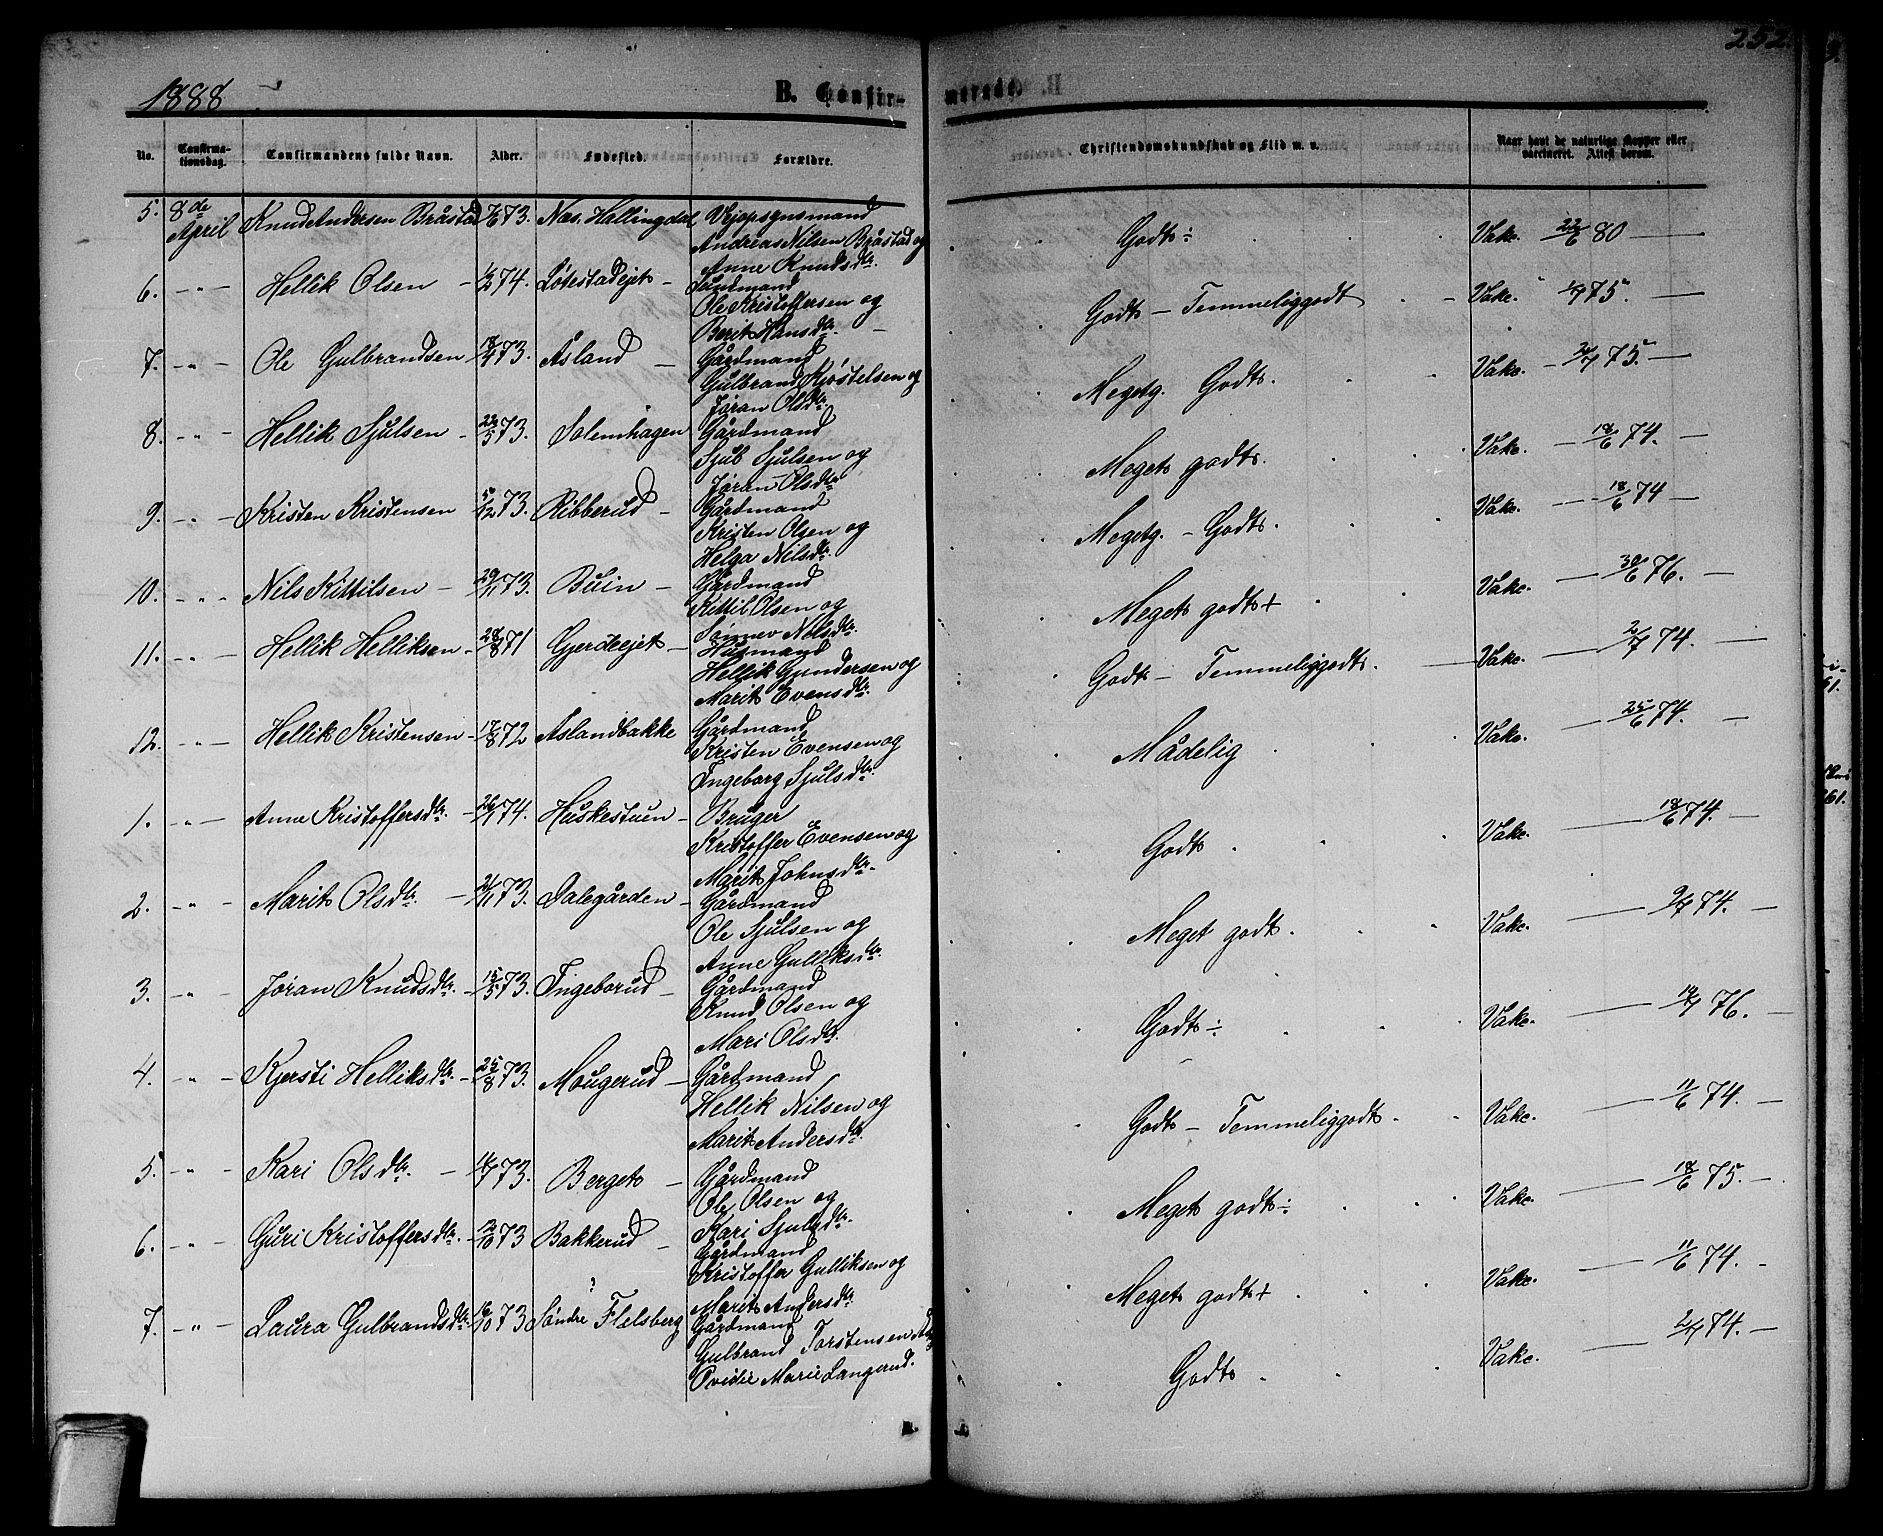 1888
B. Confir-
merede.
252
No.
Confirma-
tionsdag.
Confirmandens fulde Navn.
Alder.
Fødested.
Forældre.
Christendomskundskab og Flid m. v.
Naar havt de naturlige Kopper eller
vaccineret. Attest derom.
5. 8de April Knud Andersen Bråstad 73. Næs. Hallingdal Vejopsynsmand
Andreas Nilsen Bråstad og
Anne Knudsdtr.
Godt ÷ Vakc. 22/6 80
6. - " - Hellik Olsen - 74. Løtestadejet - Husmand
Ole Kristoffersen og
Berit Hansdtr.
Godt - Temmeliggodt Vakc. 75.
7. - " - Ole Gulbrandsen 18/4 73. Åsland - Gårdmand
Gulbrand Kjøstelsen og
Jøran Olsdtr.
Megetg. Godt. Vakc. 75.
8. - " - Hellik Sjulsen - 22/5 73. Solemhagen Gårdmand
Sjul Sjulsen og
Jøran Olsdtr.
Meget godt. Vakc. 18/6 74.
9. - " - Kristen Kristensen 5/12 73. Ribberud - Gårdmand
Kristen Olsen og
Helga Nilsdtr.
Megetg. - Godt. Vakc. 18/6 74
10. - " - Nils Kittilsen - 29/11 73. Buin - Gårdmand
Kittil Olsen og
Sønnev Nilsdtr.
Meget godt + Vakc. 30/6 76.
11. - " - Hellik Helliksen - 28/8 71 Gjerdeejet - Husmand
Hellik Gundersen og
Marit Evensdtr.
Godt - Temmeliggodt. Vakc. 2/7 74.
12. - " - Hellik Kristensen - 17/8 72 Åslandbakke Gårdmand
Kristen Evensen og
Ingeborg Sjulsdtr.
Mådelig Vakc. 25/6 74.
1. - " - Anne Kristoffersdtr. - 26/1 74. Huskestuen - Bruger
Kristoffer Evensen og
Marit Johnsdtr.
Godt Vakc. 18/6 74.
2. - " - Marit Olsdtr. - 73. Dalegården - Gårdmand
Ole Sjulsen og
Anne Gulliksdtr.
Meget godt. Vakc. 9/7 74.
3. - " - Jøran Knudsdtr. - 15/5 73. Ingeborud - Gårdmand
Knud Olsen og
Mari Olsdtr.
Godt ÷ Vakc. 76.
4. - " - Kjersti Helliksdtr. - 25/8 73. Mougerud - Gårdmand
Hellik Nilsen og
Marit Andersdtr.
Godt - Temmeliggodt. Vakc. 11/6 74.
5. - " - Kari Olsdtr. - 73. Berget - Gårdmand
Ole Olsen og
Kari Sjulsdtr.
Meget godt ÷ Vakc. 18/6 75.
6. - " - Guri Kristoffersdtr. - 73 Bakkerud - Gårdmand
Kristoffer Gulliksen og
Marit Andersdtr.
Meget godt + Vakc. 11/6 74.
7. - " - Laura Gulbrandsdtr. - 16/10 73 Søndre Flesberg Gårdmand
Gulbrand Torstensen
Ovidie Marie Langerud.
Godt Vakc. 2/7 74.